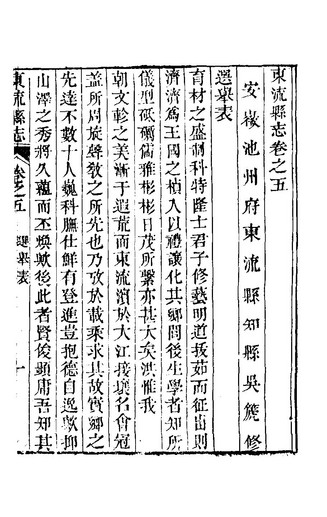 東流縣志卷之五
安徽池州府東流縣知縣吳篪修
選舉表
育材之盛制科特隆士君子修藝明道拔茹而征出則
濟濟為王國之楨入以禮讓化其鄉閭後生學者知所
儀型砥礪儒雅彬彬日茂所繫亦甚大矣洪惟我
朝文軫之美漸于遐荒而東流濱於大江接壤名會冠
蓋所周旋聲敎之所先也乃攷於載乘求其故實鄉之
先達不數十人巍科膴仕鮮有登進豈抱德自逸歟抑
山澤之秀將久蘊而丕煥歟後此者賢俊顯庸吾知其
東流縣志
卷之五
選舉表
一